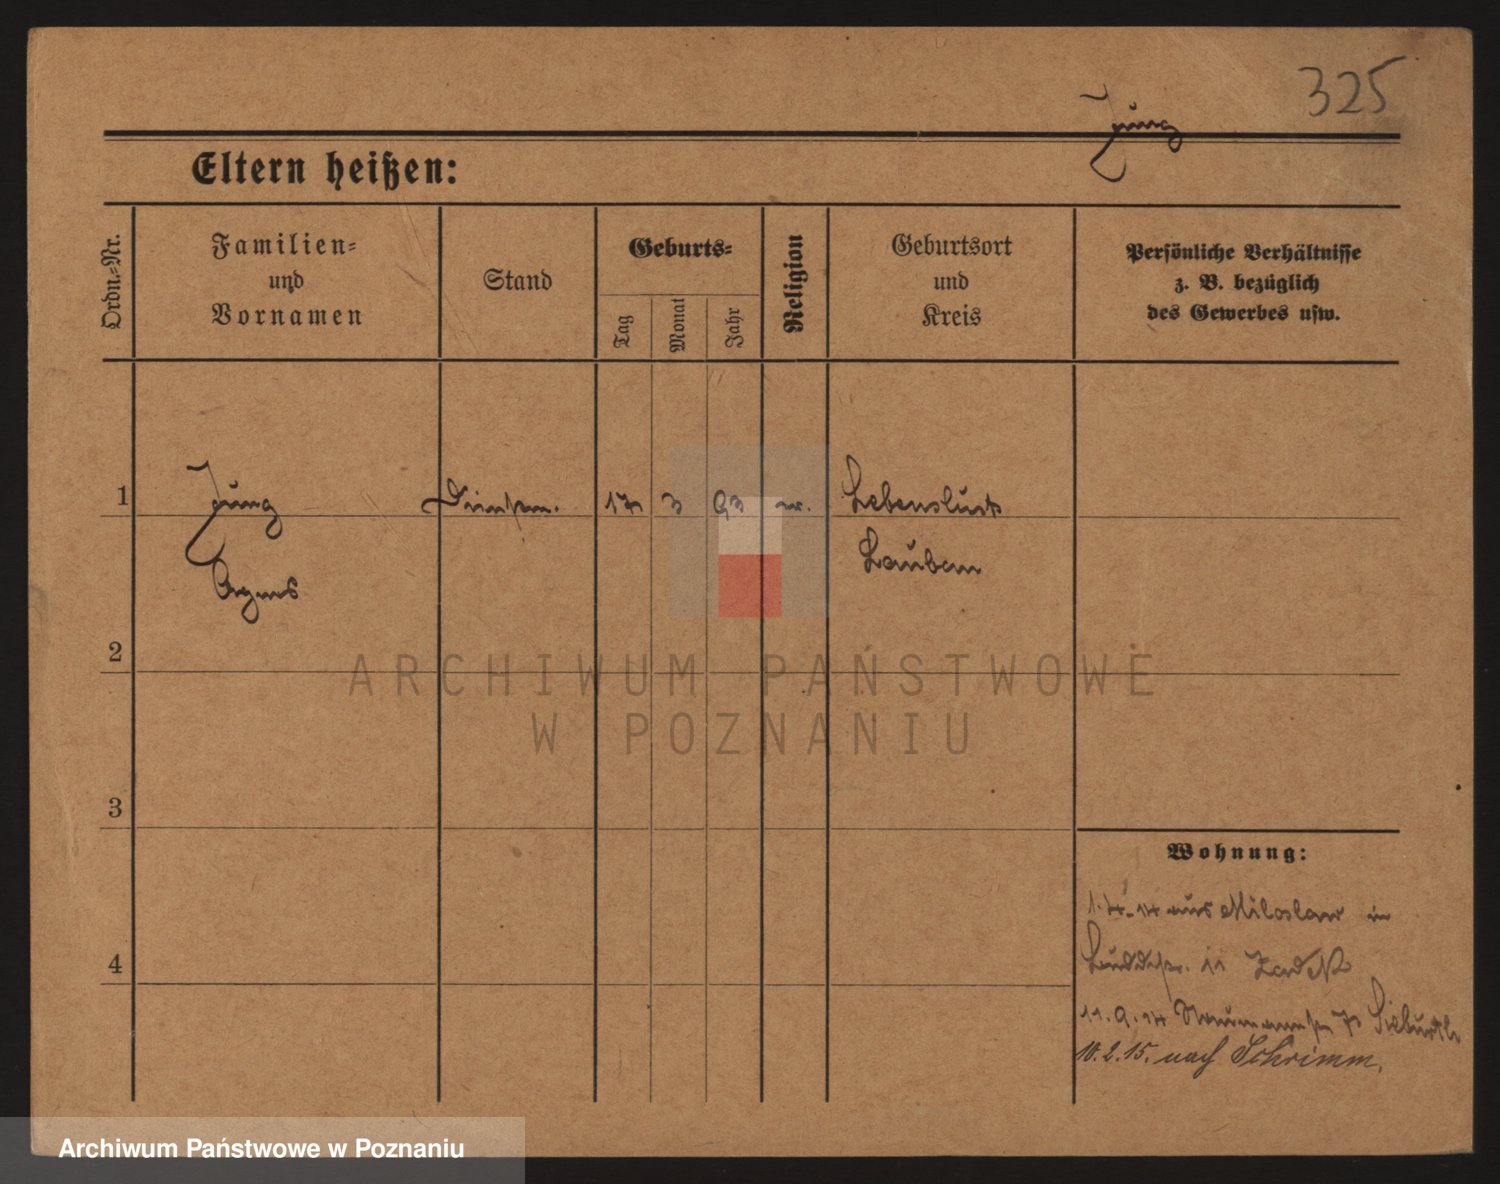 325
Jung
Eltern heißen:
Ordn.-Nr.
Familien-
und
Vornamen
Stand
Geburts-
Tag
Monat
Jahr
Religion
Geburtsort
und
Kreis
Persönliche Verhältnisse
z. B. bezüglich
des Gewerbes usw.
1
Jung
Agnes
17 3 93
Lauban
2
ARCHIWUM PAŃSTWOWE
W POZNANIU
3
4
Wohnung:
1.4.14 aus Miloslaw in
11
11.9.14
10.2.15. nach Schrimm.
Archiwum Państwowe w Poznaniu